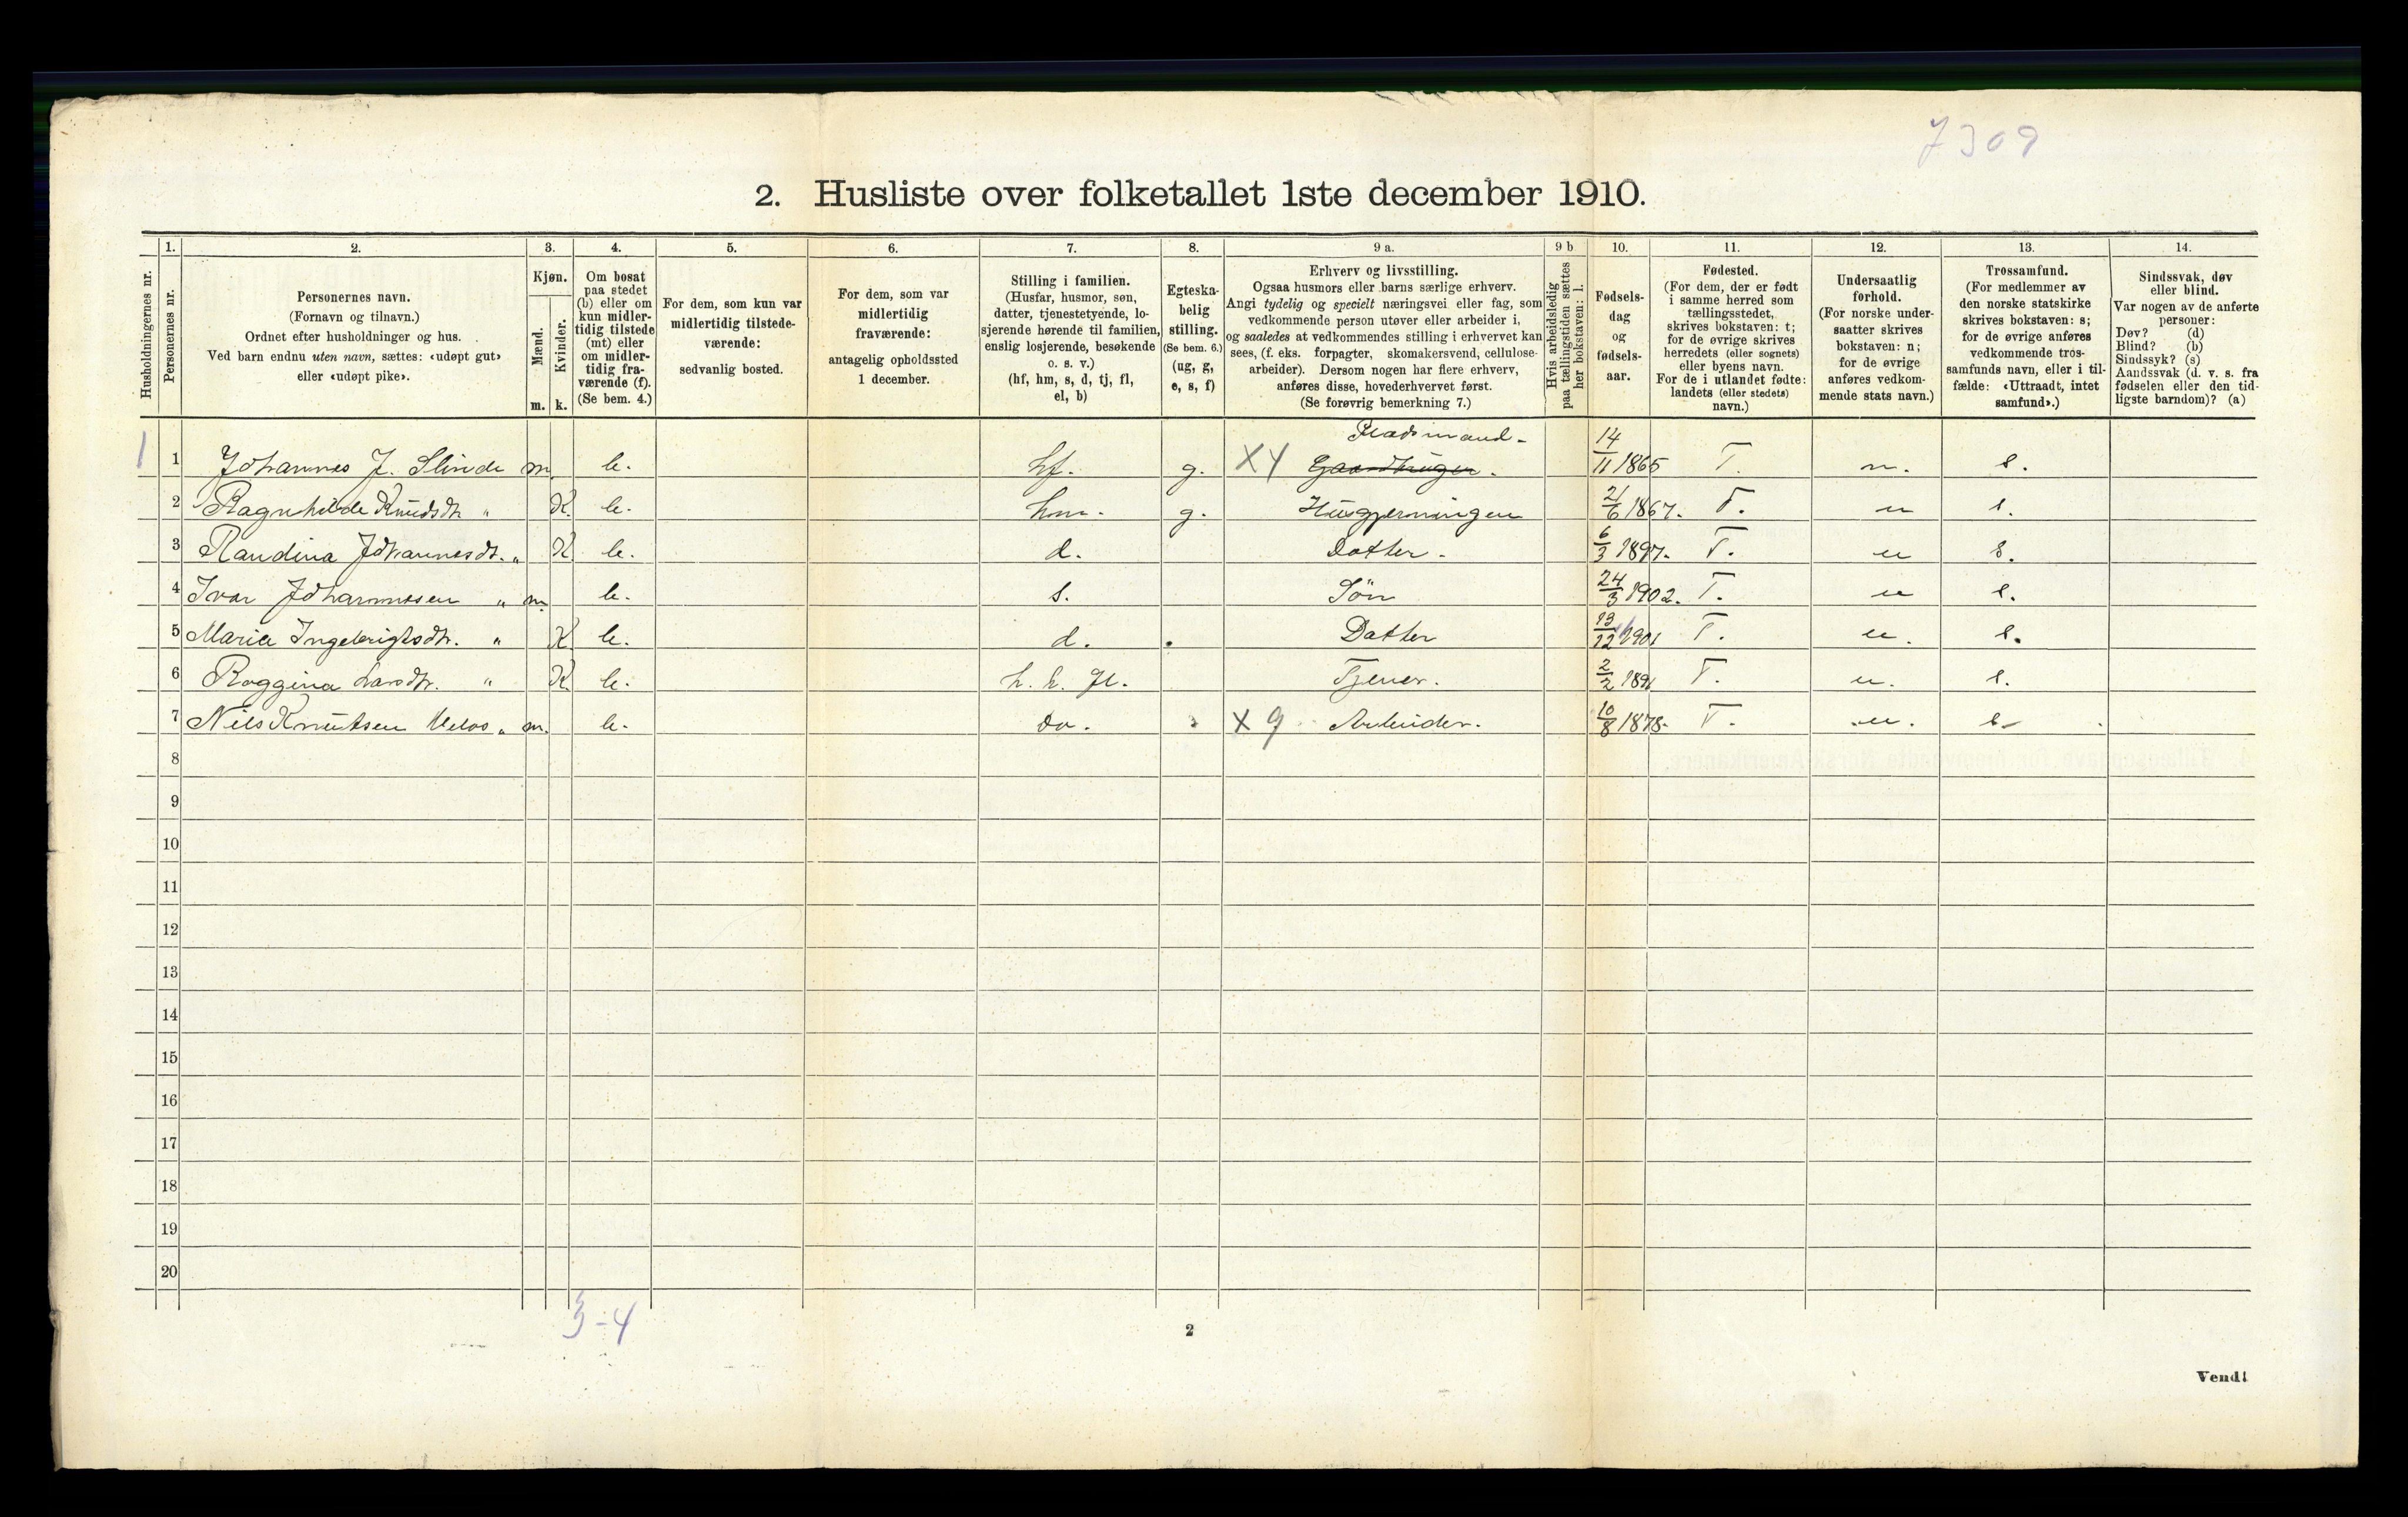 7309
2. Husliste over folketallet 1ste december 1910.
Husholdningernes nr.
1.
Personernes nr.
2.
Personernes navn.
(Fornavn og tilnavn.)
Ordnet efter husholdninger og hus.
Ved barn endnu uten navn, sættes: «udøpt gut»
eller «udøpt pike».
3.
Kjøn.
Mænd.
Kvinder.
m. k.
4.
Om bosat
paa stedet
(b) eller om
kun midler-
tidig tilstede
(mt) eller
om midler-
tidig fra-
værende (f).
(Se bem. 4.)
5.
For dem, som kun var
midlertidig tilstede-
værende:
sedvanlig bosted.
6.
For dem, som var
midlertidig
fraværende:
antagelig opholdssted
1 december.
7.
Stilling i familien.
(Husfar, husmor, søn,
datter, tjenestetyende, lo-
sjerende hørende til familien,
enslig losjerende, besøkende
o. s. v.)
(hf, hm, s, d, tj, fl,
el, b)
8.
Egteska-
belig
stilling.
(Se bem. 6.)
(ug, g,
e, s, f)
9 a.
Erhverv og livsstilling.
Ogsaa husmors eller barns særlige erhverv.
Angi tydelig og specielt næringsvei eller fag, som
vedkommende person utøver eller arbeider i,
og saaledes at vedkommendes stilling i erhvervet kan
sees, (f. eks. forpagter, skomakersvend, cellulose-
arbeider). Dersom nogen har flere erhverv,
anføres disse, hovederhvervet først.
(Se forøvrig bemerkning 7.)
9 b
Hvis arbeidsledig
paa tællingstiden sættes
her bokstaven: l.
10.
Fødsels-
dag
og
fødsels-
aar.
11.
Fødested.
(For dem, der er født
i samme herred som
tællingsstedet,
skrives bokstaven: t;
for de øvrige skrives
herredets (eller sognets)
eller byens navn.
For de i utlandet fødte:
landets (eller stedets)
navn.)
12.
Undersaatlig
forhold.
(For norske under-
saatter skrives
bokstaven: n;
for de øvrige
anføres vedkom-
mende stats navn.)
13.
Trossamfund.
(For medlemmer av
den norske statskirke
skrives bokstaven: s;
for de øvrige anføres
vedkommende tros-
samfunds navn, eller i til-
fælde: «Uttraadt, intet
samfund».)
14.
Sindssvak, døv
eller blind.
Var nogen av de anførte
personer:
Døv? (d)
Blind? (b)
Sindssyk? (s)
Aandssvak (d. v. s. fra
fødselen eller den tid-
ligste barndom)? (a)
Pladsmand -
1 1 Johannes J. Slinde m. b. hf. g. X4 Gaardbruger. 14/11 1865 T. n. s.
2 Ragnhilde Knudsdtr. " K b. hm. g. Husgjerningen 21/6 1867. T. n s.
3 Randina Johannesdt. " K b. d. Datter. 6/3 1897. T. n s.
4 Ivar Johannesen " m. b. s. Sön 24/3 1902. T. n s.
5 Maria Ingebrigtsdtr. " K b. d. Datter 13/12 1901 T. n. s.
6 Larsdtr. " K b. Tjener. 2/2 1891 T. n. s.
7 Nils Knutsen " m. b. do. X 9 Arbeider. 10/8 1878. T. n. s
8
9
10
11
12
13
14
15
16
17
18
19
20
3-4
2
Vend!